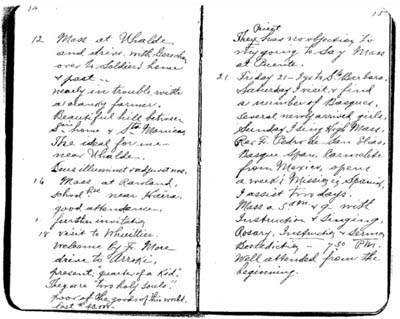 14
12 Mass at Uhalde
and drive with Garacho
over to Soldiers' home
& past --
nearly in trouble with
a dandy farmer.
Beautiful hill between
S. home & Sta Monica.
The ideal for me
near Uhalde.
Deus illuminet
16 Mass at Rowland,
School Hse near
good attendance,
further invitation
18 visit to Whittier
welcome by F. More
drive to Arroki,
present, quarter of a Kid.
They are "two holy souls."
poor of the goods of this world.
last
15
Priest
There has no objection to
my going to Say Mass
at Puente.
21 Friday 21 - I go to Sta Barbara,
Saturday I visit & find
a number of Basques,
several newly arrived girls.
Sunday I sing High Mass.
Rev. F. Pedro de San Elias,
Basque Span. Carmelite
from Mexico, opens
a week's Mission in Spanish,
I assist two days
Mass a 5 a.m. & 9. with
Instruction & Singing,
Rosary, Instruction & Sermon
Benediction 7:30 P.M.
Well attended from the
beginning.